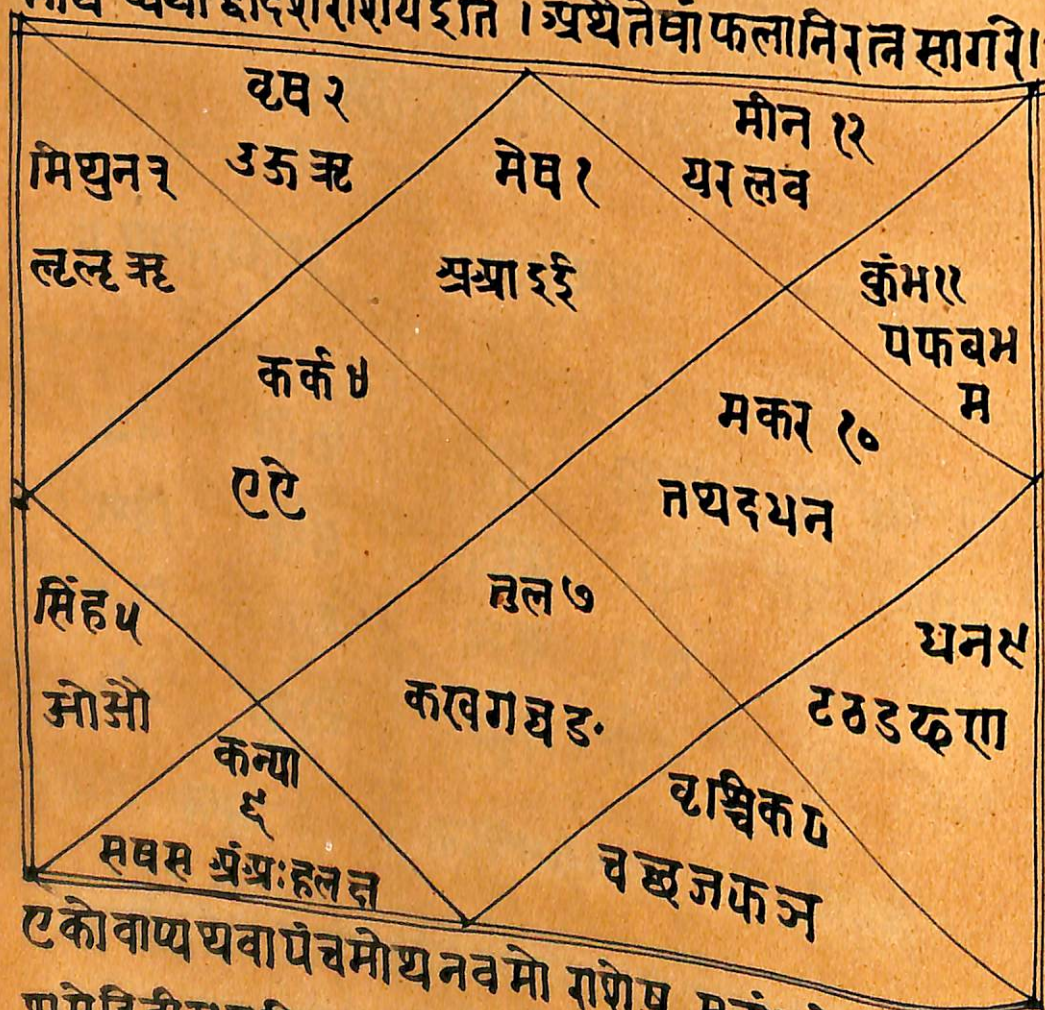 द्वादशराशय इति । अथ तेषां फलानि रत्न सागरे।
वृष २
उ ऊ ऋ
मिथुन ३
ऌ ऌ ॠ
मेष १
अ आ इ ई
मीन १२
य र ल व
कुंभ ११
प फ ब भ
म
कर्क ४
ए ऐ
मकर १०
त थ द ध न
सिंह ५
ओ औ
तुल ७
क ख ग घ ङ
धन ९
ट ठ ड ढ ण
कन्या
६
स ष स अं अः ह ल क्ष
वृश्चिक ८
च छ ज झ ञ
एको वाप्यथवा पंचमोथ नवमो राशेष